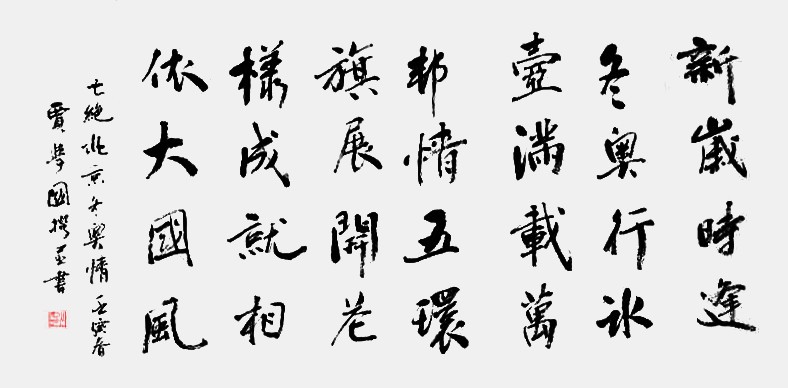 新歲時逢
冬奥行冰
壺滿載萬
邦情五環
旗展開花
樣成就相
依大國風
七絶北京冬奥情 壬寅春
賈學國撰并書